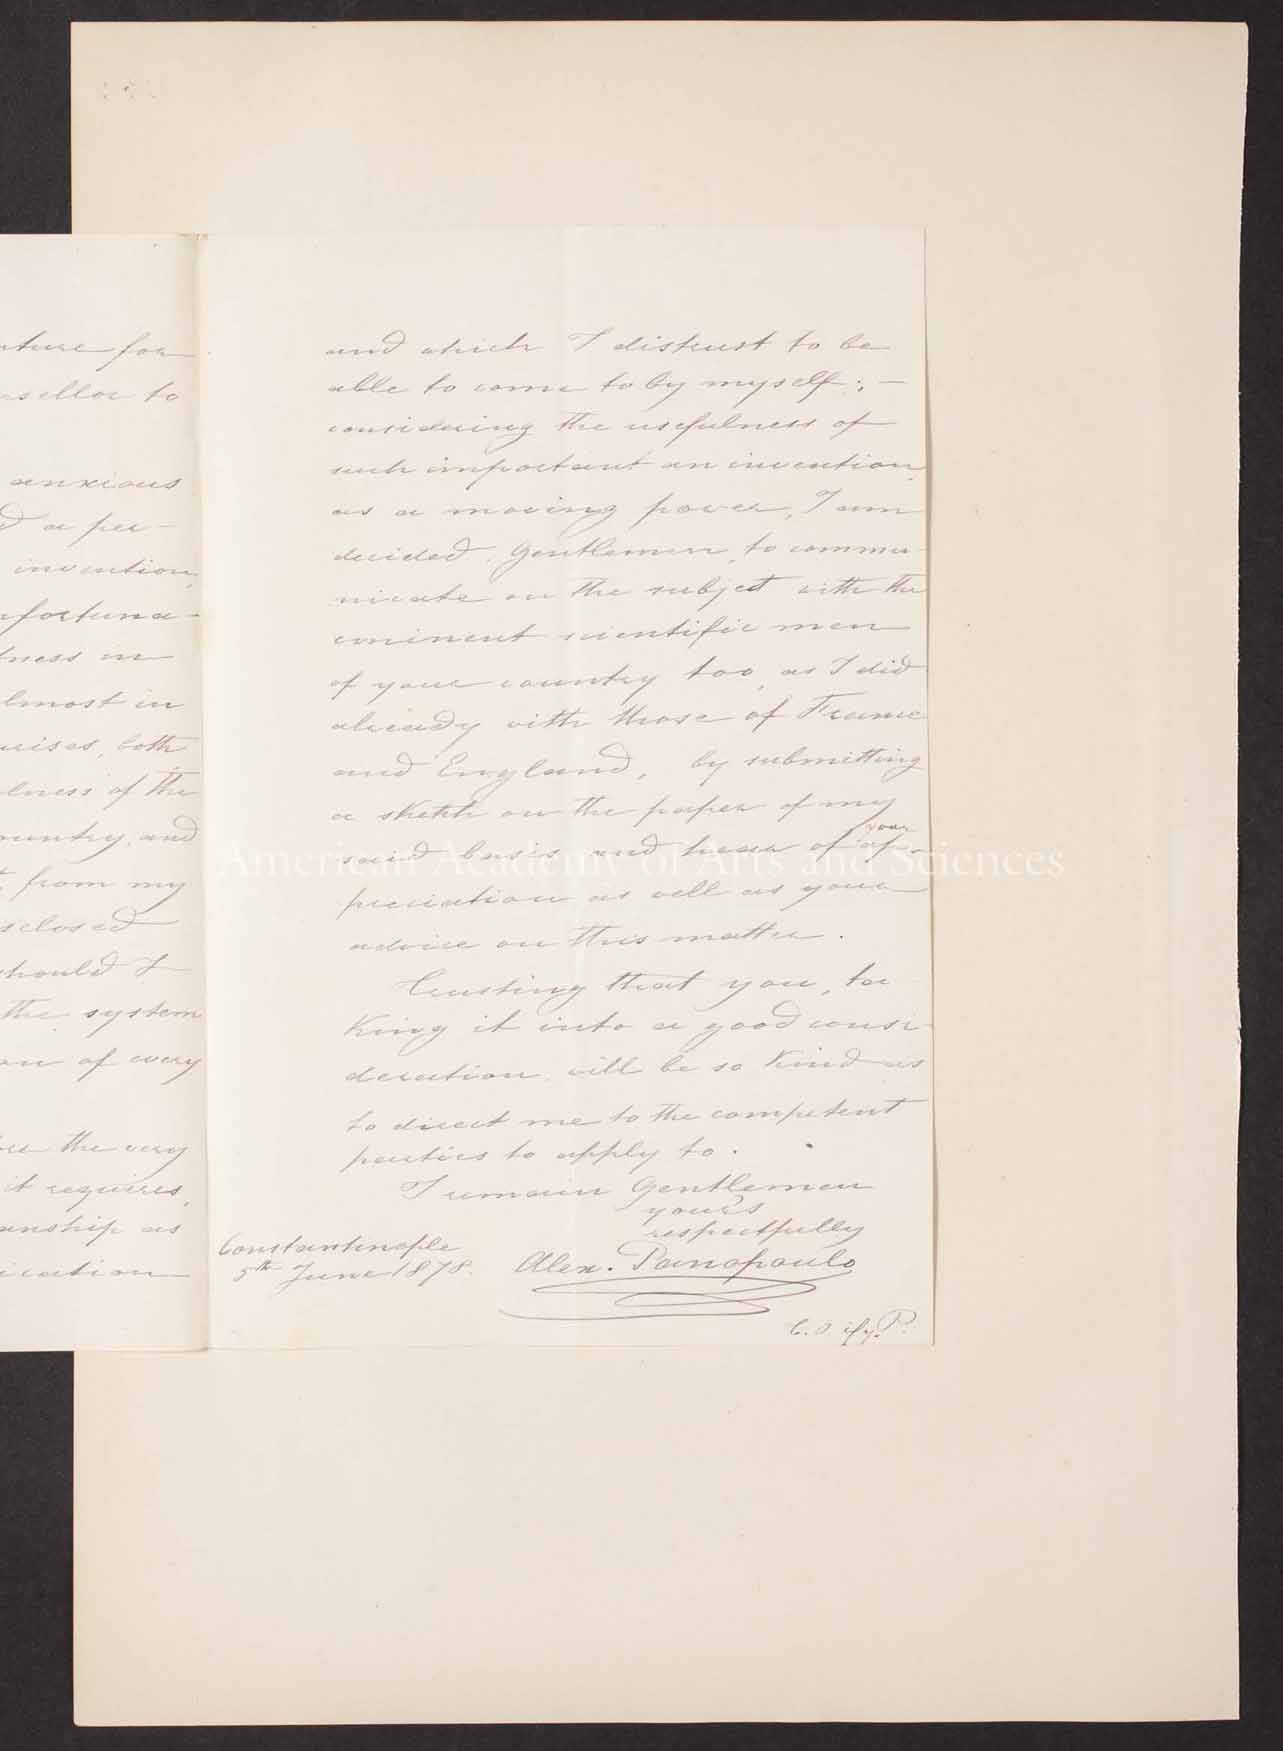 ature for
sellor to
anxious
d a per-
invention,
nfortuna-
tness in
lmost in
uises, both
lness of the
ountry, and
from my
sclosed
should I
the system
on of every
the very
it requires,
anship as
ication
and which I distrust to be
able to come to by myself; —
considering the usefulness of
such important an invention,
as a moving power, I am
decided, Gentlemen, to commu-
nicate on the subject with the
eminent scientific men
of your country too, as I did
already with those of France
and England, by submitting
a sketch on the paper of my
said basis and hear of your ap-
preciation as well as your
advice on this matter.
Trusting that you, ta-
king it into a good consi-
deration, will be so kind as
to direct me to the competent
parties to apply to.
I remain Gentlemen
yours
respectfully
Constantinople
5th June 1878.
Alex. Panopoulo
American Academy of Arts and Sciences